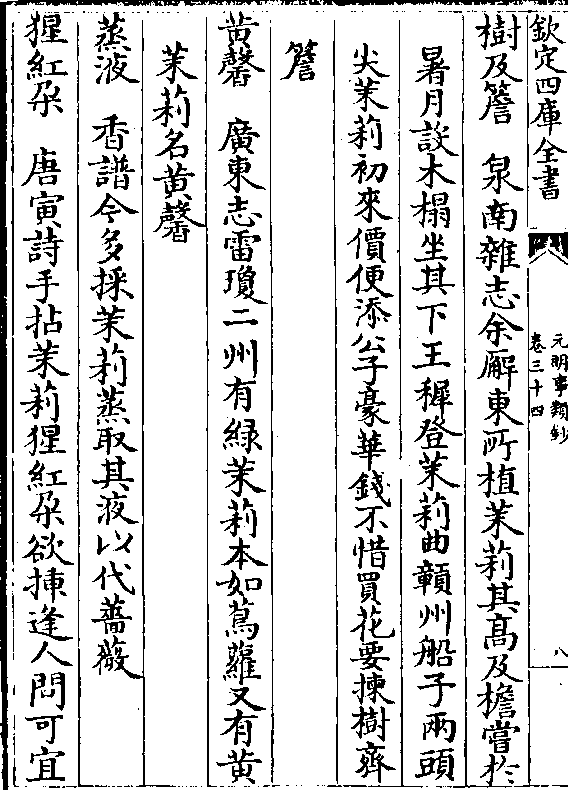 欽定四庫全書
元明事類鈔
卷三十四
八
樹及簷　泉南雜志余廨東所植茉莉其髙及檐嘗於
暑月設木榻坐其下王穉登茉莉曲贑州船子兩頭
尖茉莉初來價便添公子豪華錢不惜買花要揀樹齊
簷
黄馨　廣東志雷瓊二州有緑茉莉本如蔦蘿又有黄
茉莉名黄馨
蒸液　香譜今多採茉莉蒸取其液以代薔薇
猩紅朶　唐寅詩手拈茉莉猩紅朶欲揷逢人問可宜